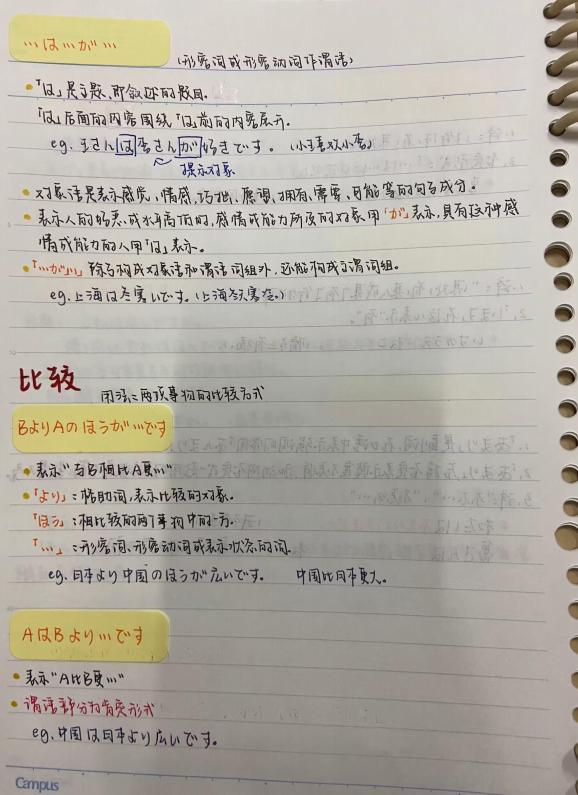 …は…が…
(形容词或形容动词作谓语)
「は」是主题、即叙述的题目.
「は」后面的内容围绕「は」前的内容展开.
eg. 王さんは李さんが好きです。(小王喜欢小李)
提示对象
对象语是表示感觉,情感,巧拙、愿望、拥有、需要、可能等的句子成分。
表示人的好恶、或水平高低时,感情或能力所及的对象用「が」表示,具有这种感
情或能力的人用「は」表示。
「…が…」除了构成对象语和谓语词组外,还能构成主谓词组。
eg. 上海は冬寒いです。(上海冬天寒冷。)
比较
用法:两项事物的比较方式
BよりAのほうが…です
表示“与B相比A更…”
「より」:格助词,表示比较的对象.
「ほう」:相比较的两个事物中的一方.
「…」:形容词、形容动词或表示状态的词.
eg. 日本より中国のほうが広いです。 中国比日本更大。
AはBより…です
表示“A比B更…”
谓语部分为肯定形式
eg. 中国は日本より広いです。
Campus